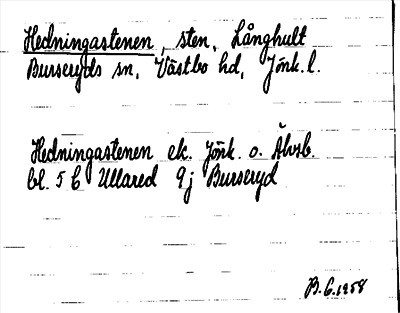 Hedningastenen, sten, Långhult
Burseryds sn, Västbo hd, Jönk. l.
Hedningastenen ek. Jönk. o. Älvsb.
bl. 5 C Ullared 9j Burseryd
B.G. 1958